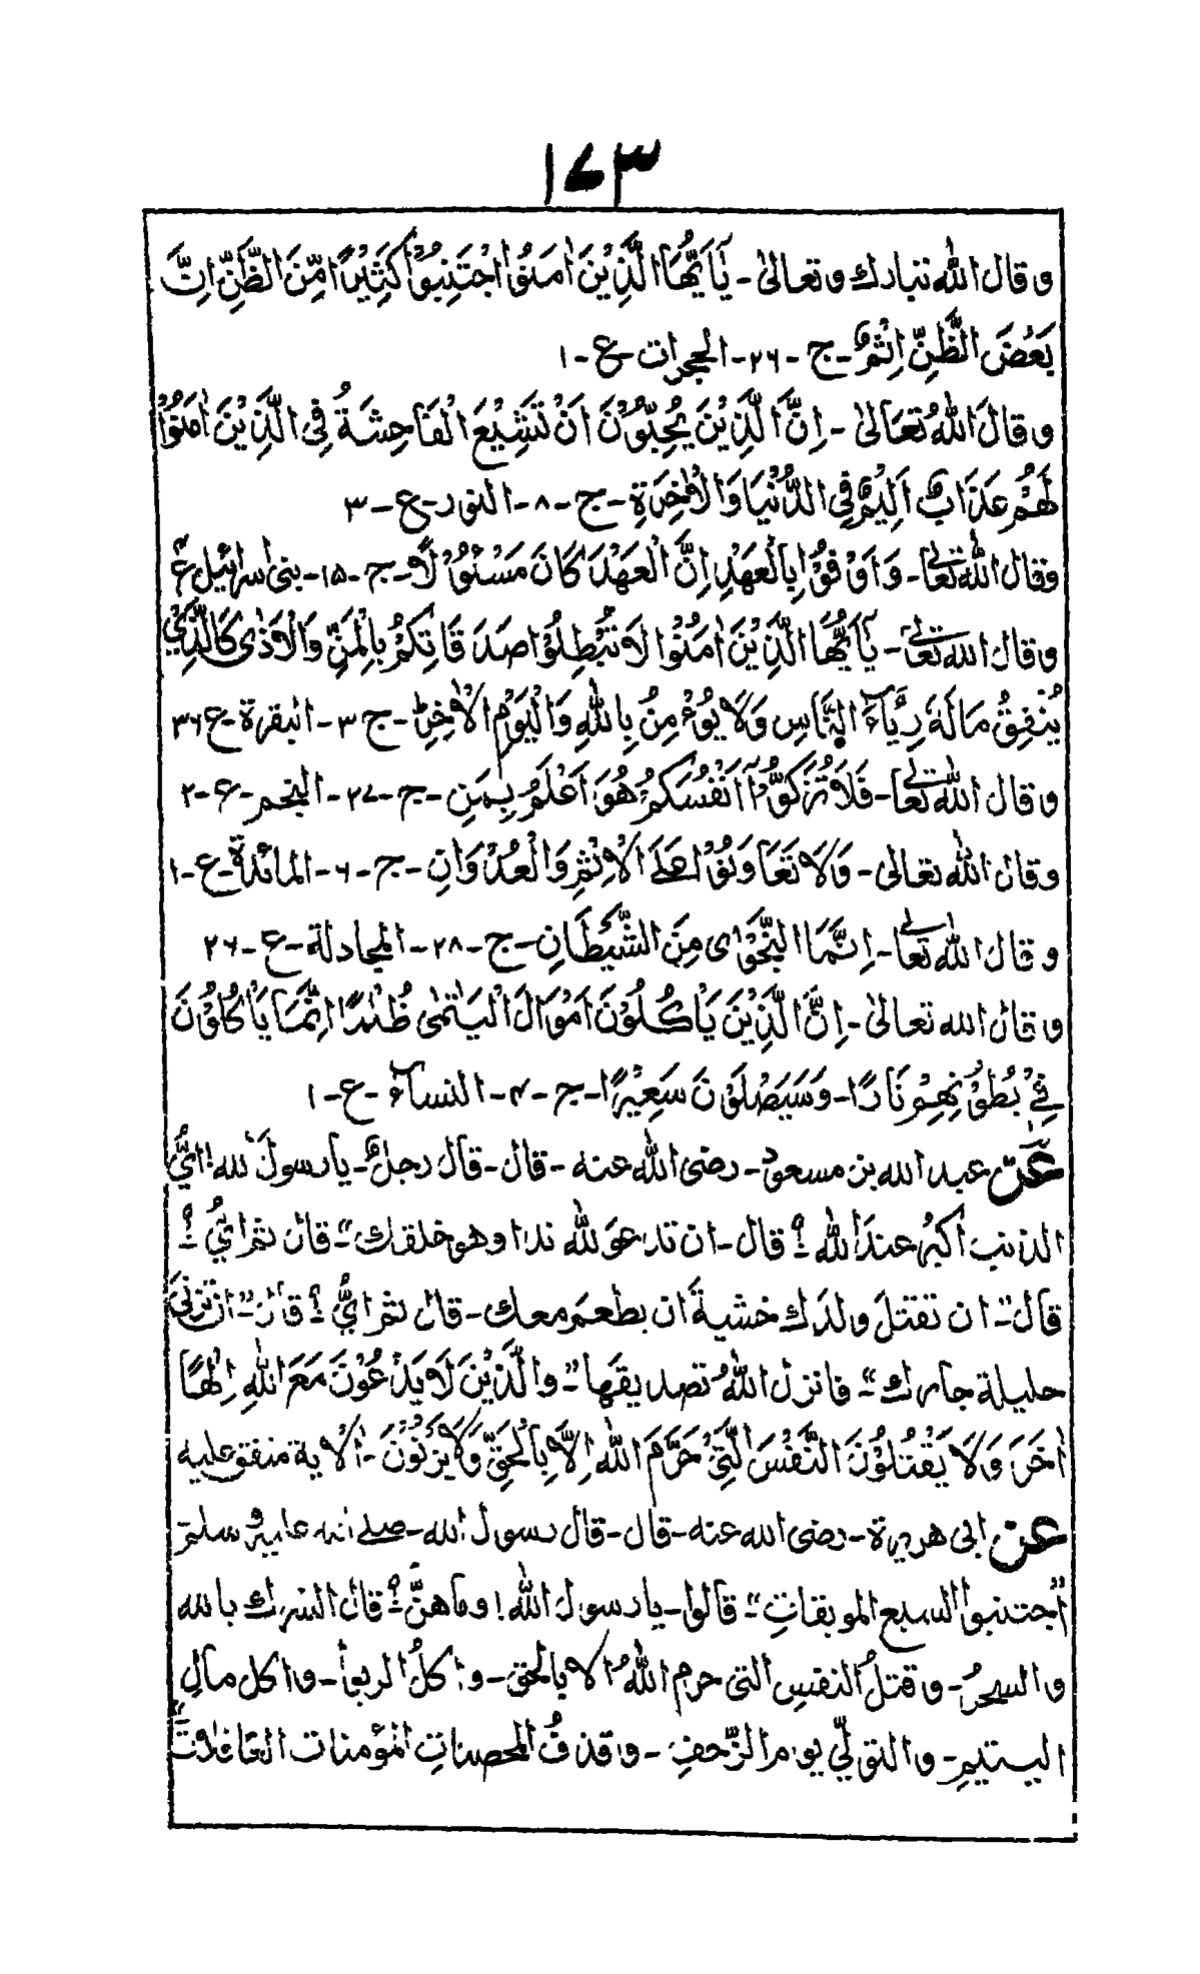 ١٧٣
وقال الله تبارك وتعالىٰ - يٰٓاَيُّهَا الَّذِيْنَ اٰمَنُوا اجْتَنِبُوْا كَثِيْرًا مِّنَ الظَّنِّ اِنَّ
بَعْضَ الظَّنِّ اِثْمٌ - ج - ٢٦ - الحجرات - ع - ١
وقالَ اللهُ تعَالىٰ - اِنَّ الَّذِيْنَ يُحِبُّوْنَ اَنْ تَشِيْعَ الْفَاحِشَةُ فِي الَّذِيْنَ اٰمَنُوْا
لَهُمْ عَذَابٌ اَلِيْمٌ فِي الدُّنْيَا وَالْاٰخِرَةِ - ج - ٨ - النور - ع - ٣
وقال الله تعالےٰ - وَاَوْفُوْا بِالْعَهْدِ اِنَّ الْعَهْدَ كَانَ مَسْئُوْلًا - ج - ١٥ - بنى اسرائيل ع
وقال الله تعالےٰ - يٰٓاَيُّهَا الَّذِيْنَ اٰمَنُوْا لَا تُبْطِلُوْا صَدَقَاتِكُمْ بِالْمَنِّ وَالْاَذٰى كَالَّذِيْ
يُنْفِقُ مَالَهٗ رِئَآءَ النَّاسِ وَلَا يُوْمِنُ بِاللهِ وَالْيَوْمِ الْاٰخِرِ - ج ٣ - البقرة - ع ٣٦
وقال الله تعالےٰ - فَلَا تُزَكُّوْٓا اَنْفُسَكُمْ هُوَ اَعْلَمُ بِمَنِ - ج - ٢٧ - النجم - ع - ٢
وقال الله تعالى - وَلَا تَعَاوَنُوْا عَلَے الْاِثْمِ وَالْعُدْوَانِ - ج - ٦ - المائدة - ع - ١
وقال الله تعالےٰ - اِنَّمَا النَّجْوٰى مِنَ الشَّيْطَانِ - ج - ٢٨ - المجادلة - ع - ٢٦
وقال الله تعالىٰ - اِنَّ الَّذِيْنَ يَاْكُلُوْنَ اَمْوَالَ الْيَتٰمٰى ظُلْمًا اِنَّمَا يَاْكُلُوْنَ
فِيْ بُطُوْنِهِمْ نَارًا - وَسَيَصْلَوْنَ سَعِيْرًا - ج - ٤ - النسآء - ع - ١
عن عبد الله بن مسعود - رضى الله عنه - قال - قال رجلٌ - يا رسولَ الله! ايُّ
الذنب اكبرُ عندَ الله ؟ قال - ان تدعوَ لله ندا وهو خلقك" - قال ثم ايُّ ؟ -
قال" - ان تقتلَ ولدَك خشيةَ ان يطعم معك - قال ثم ايُّ ؟ قال" - ان تزنيَ
حليلة جارك" - فانزل اللهُ تصديقَها" - والَّذِيْنَ لَا يَدْعُوْنَ مَعَ اللهِ اِلٰهًا
اٰخَرَ وَلَا يَقْتُلُوْنَ النَّفْسَ الَّتِيْ حَرَّمَ اللهُ اِلَّا بِالْحَقِّ وَلَا يَزْنُوْنَ - الْاٰية متفق عليه
عن ابى هريرة - رضى الله عنه - قال - قال رسول الله - صلے الله عليه وسلم
"اجتنبوا السبع الموبقاتِ" - قالوا - يا رسول الله! وما هنَّ ؟ قال الشرك بالله
والسحرُ - وقتلُ النفسِ التى حرم اللهُ الا بالحق - واكلُ الربوا - واكل مالِ
اليتيمِ - والتولّي يوم الزَّحفِ - وقذفُ المحصناتِ المؤمنات الغافلات"